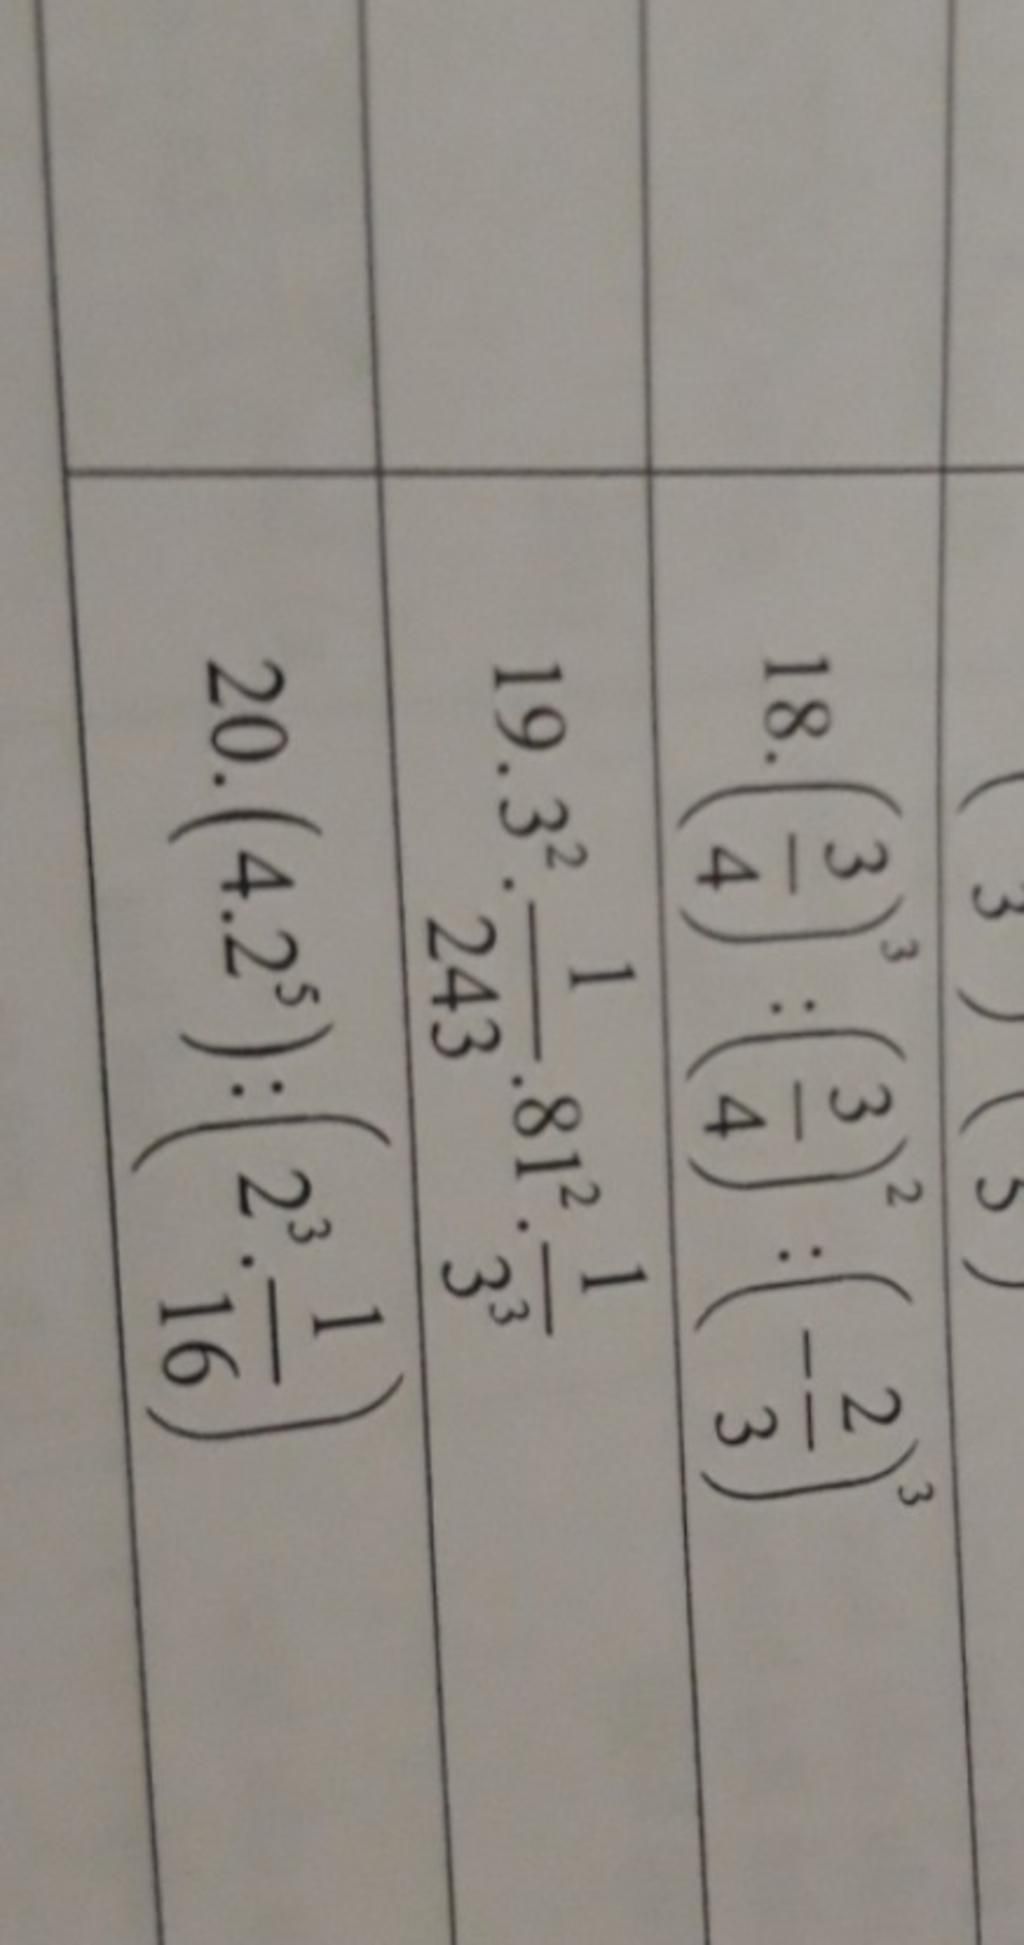 ( 3 ) ( 5 )
18. (3/4)³ : (3/4)² : (-2/3)³
19. 3² . 1/243 . 81² . 1/3³
20. (4.2⁵) : (2³ . 1/16)